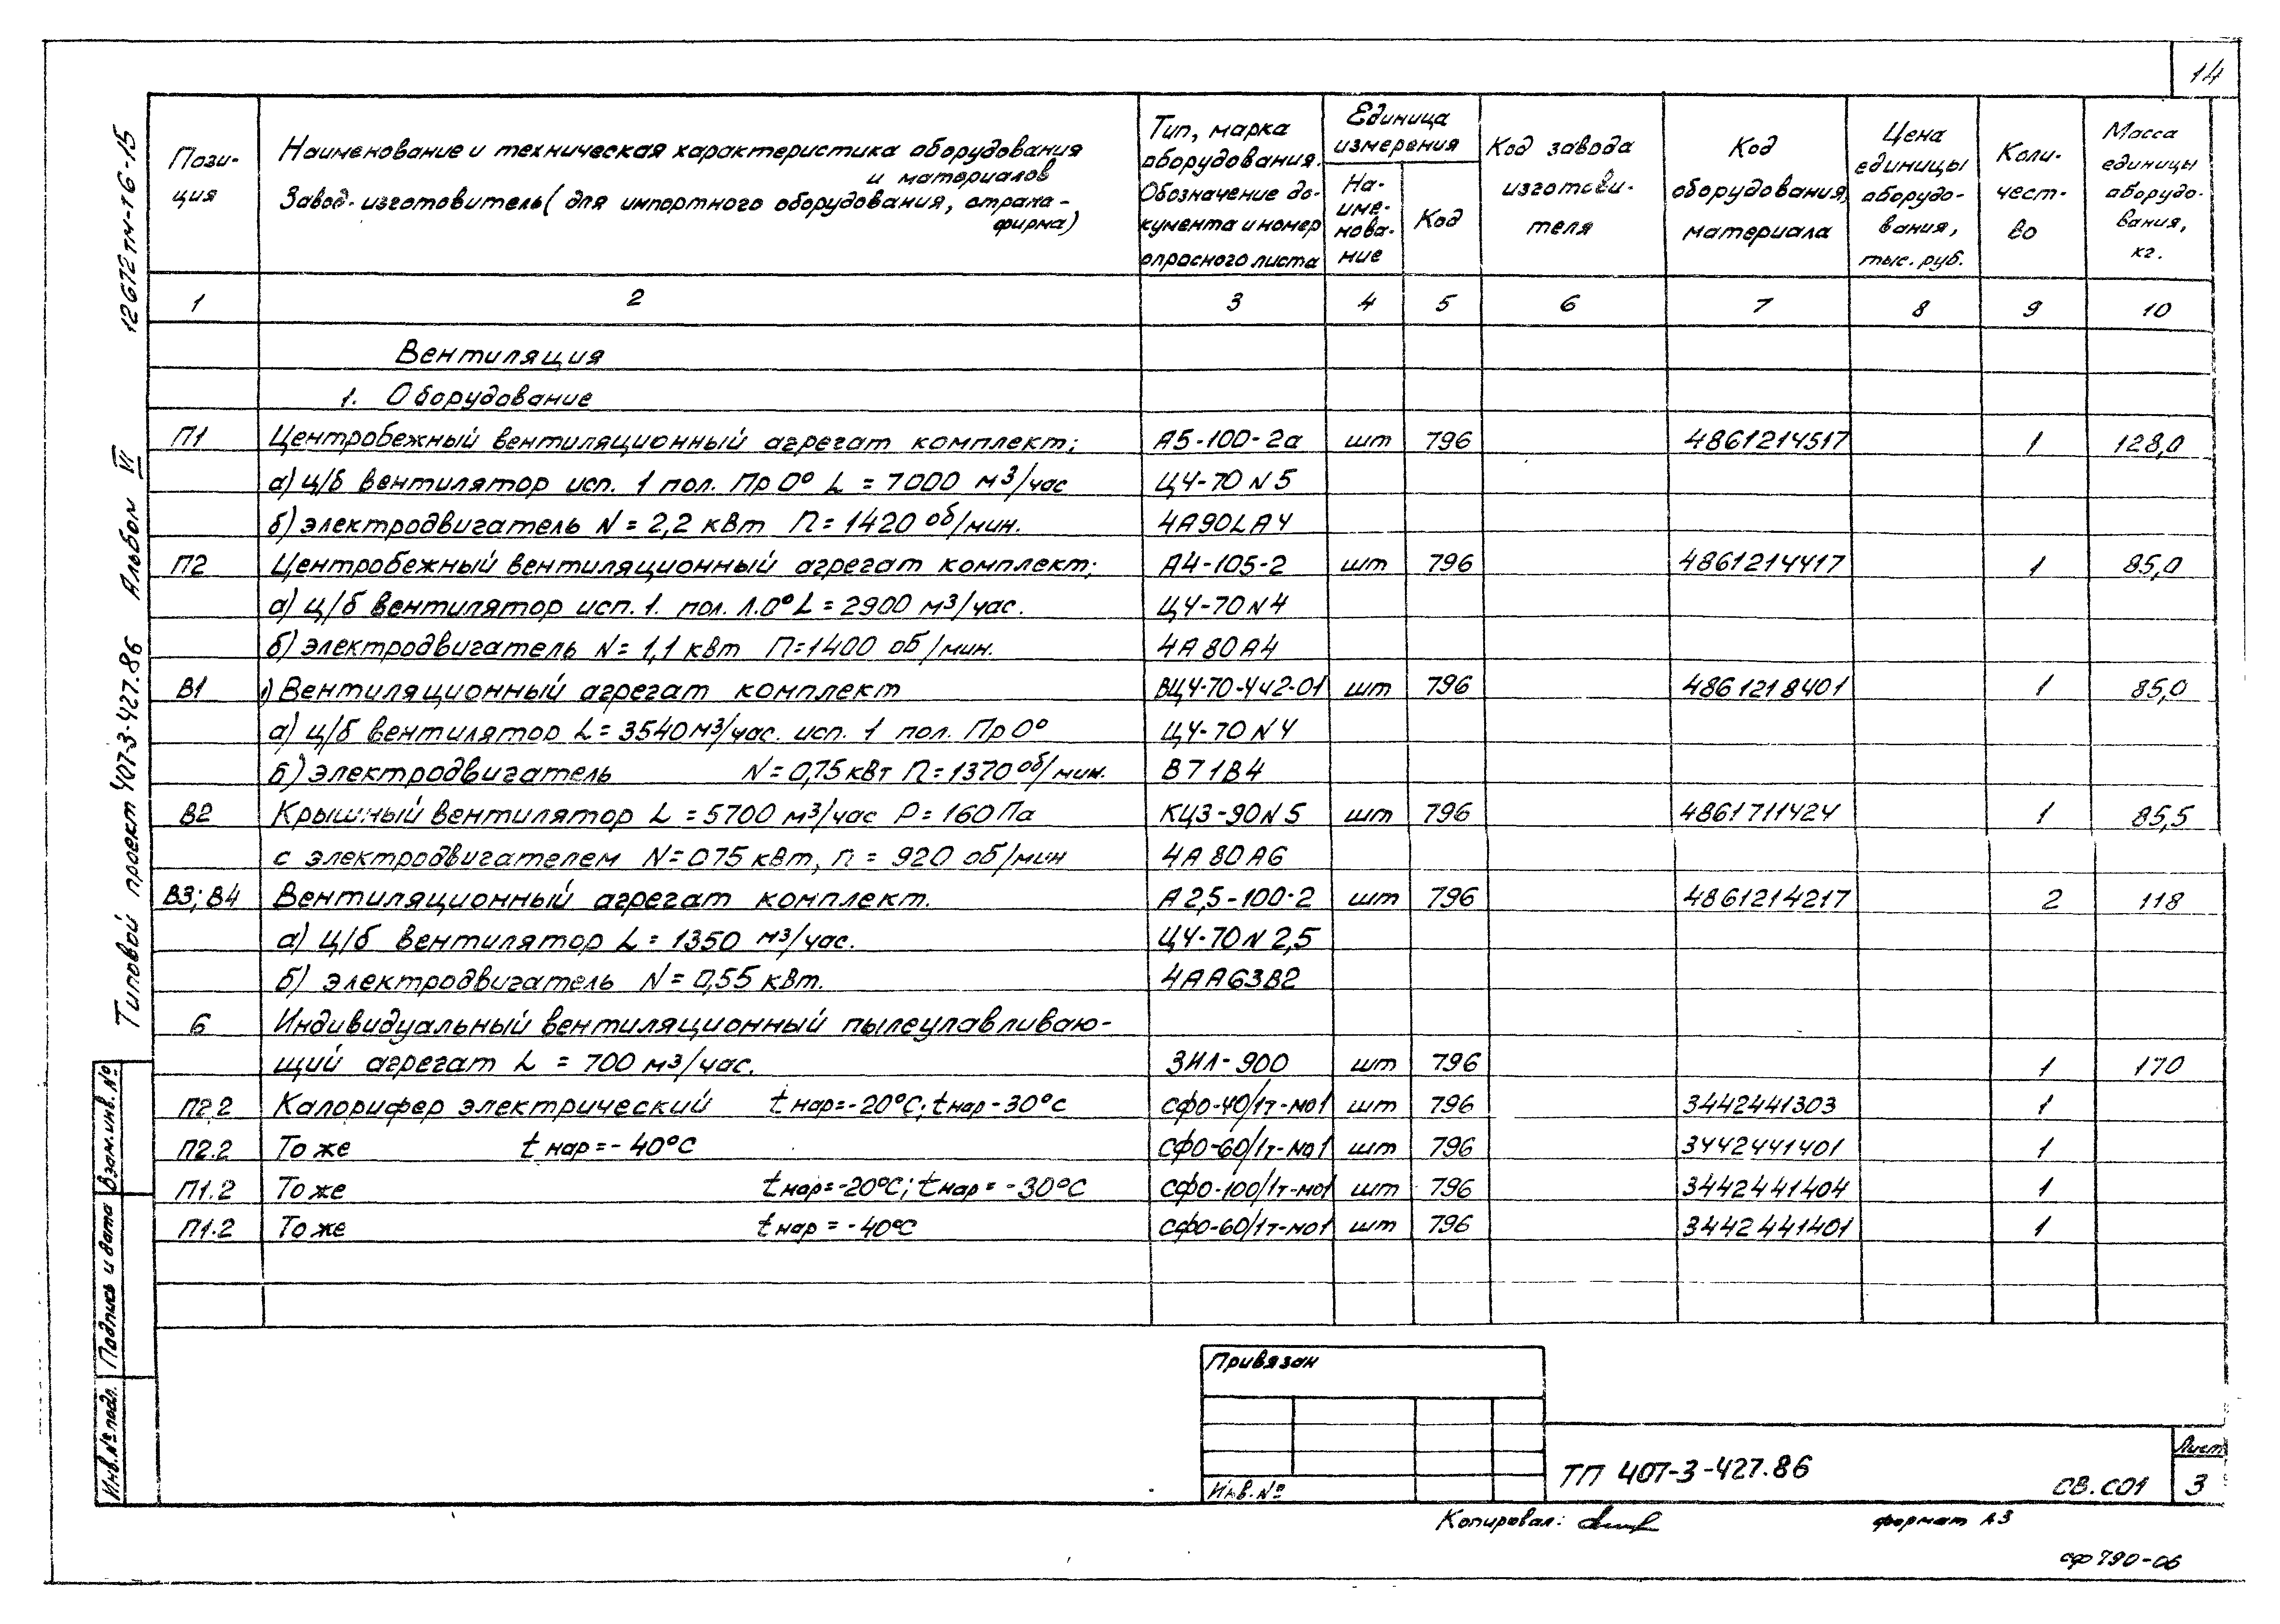 14
Пози-
ция
Наименование и техническая характеристика оборудования
и материалов
Завод-изготовитель (для импортного оборудования, страна-
фирма)
Тип, марка
оборудования.
Обозначение до-
кумента и номер
опросного листа
Единица
измерения
На-
име-
нова-
ние
Код
Код завода
изготови-
теля
Код
оборудования,
материала
Цена
единицы
оборудо-
вания,
тыс. руб.
Коли-
чест-
во
Масса
единицы
оборудо-
вания,
кг.
1 2 3 4 5 6 7 8 9 10
Вентиляция
1. Оборудование
П1 Центробежный вентиляционный агрегат комплект; А5-100-2а шт 796 4861214517 1 128,0
а) ц/б вентилятор исп. 1 пол. Пр 0° L = 7000 м3/час Ц4-70 N 5
б) электродвигатель N = 2,2 кВт П = 1420 об/мин. 4А90LА4
П2 Центробежный вентиляционный агрегат комплект; А4-105-2 шт 796 4861214417 1 85,0
а) ц/б вентилятор исп. 1. пол. Л.0° L = 2900 м3/час. Ц4-70 N 4
б) электродвигатель N = 1,1 кВт П = 1400 об/мин. 4А80А4
В1 1) Вентиляционный агрегат комплект ВЦ4-70-4у2-01 шт 796 4861218401 1 85,0
а) ц/б вентилятор L = 3540 м3/час. исп. 1 пол. Пр 0° Ц4-70 N 4
б) электродвигатель N = 0,75 кВт П = 1370 об/мин. В71В4
В2 Крышный вентилятор L = 5700 м3/час Р = 160 Па КЦ3-90 N 5 шт 796 4861711424 1 85,5
с электродвигателем N = 075 кВт, п = 920 об/мин 4А80А6
В3; В4 Вентиляционный агрегат комплект. А2,5-100-2 шт 796 4861214217 2 118
а) ц/б вентилятор L = 1350 м3/час. Ц4-70 N 2,5
б) электродвигатель N = 0,55 кВт. 4АА63В2
6 Индивидуальный вентиляционный пылеулавливаю-
щий агрегат L = 700 м3/час. ЗИЛ-900 шт 796 1 170
П2.2 Калорифер электрический t нар = -20°С; t нар -30°С СФО-40/1т-М01 шт 796 3442441303 1
П2.2 То же t нар = -40°С СФО-60/1т-М01 шт 796 3442441401 1
П1.2 То же t нар = -20°С; t нар = -30°С СФО-100/1т-М01 шт 796 3442441404 1
П1.2 То же t нар = -40°С СФО-60/1т-М01 шт 796 3442441401 1
12672тм-т6-15
Типовой проект 407-3-427.86 Альбом VI
Взам. инв. №
Подпись и дата
Инв. № подл.
Привязан
Инв. №
ТП 407-3-427.86
СВ.С01
Лист
3
Копировал:
формат А3
сф 790-06